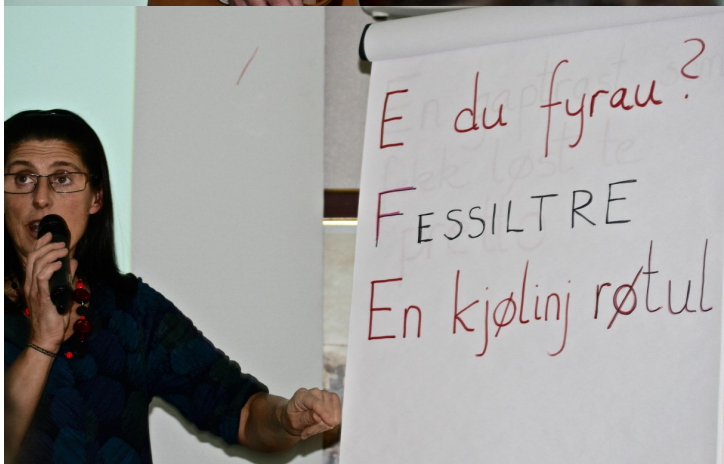 E du fyrau?
FESSILTRE
En kjølinj røtul